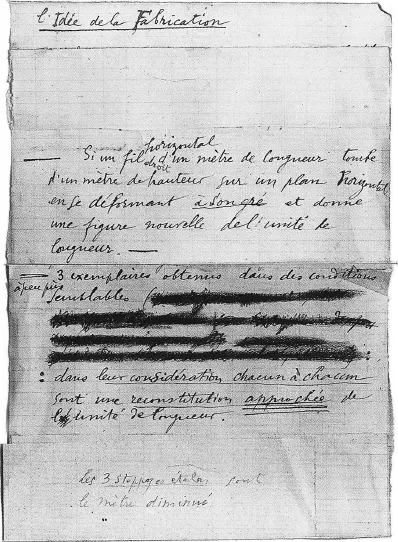 l'Idée de la Fabrication
horizontal
— Si un fil d'un mètre de longueur tombe
droit
d'un mètre de hauteur sur un plan horizontal
en se déformant à son gré et donne
une figure nouvelle de l'unité de
longueur. —
— 3 exemplaires obtenus dans des conditions
à peu près
semblables
: dans leur considération chacun à chacun
sont une reconstitution approchée de
l'unité de longueur.
Les 3 stoppages étalon sont
le mètre diminué